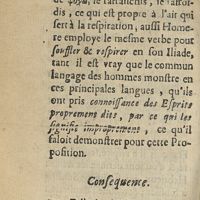 dis, ce qui est propre à l'air qui
sert à la respiration; aussi Home-
re employe le mesme verbe pour
souffler & respirer en son Iliade,
tant il est vray que le commun
langage des hommes monstre en
ces principales langues, qu'ils
ont pris connoissance des Esprits
proprement dits, par ce qui les
signifie improprement, ce qu'il
faloit demonstrer pour cette Pro-
position.
Consequence.